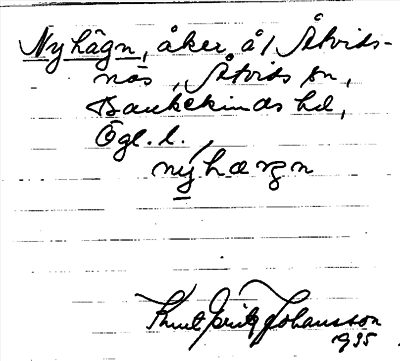 Nyhägn, åker å/ Åtvids-
näs, Åtvids sn,
Bankekinds hd,
Ögl. l.,
nyhæŋn
Knut Fritz Johansson
1935.